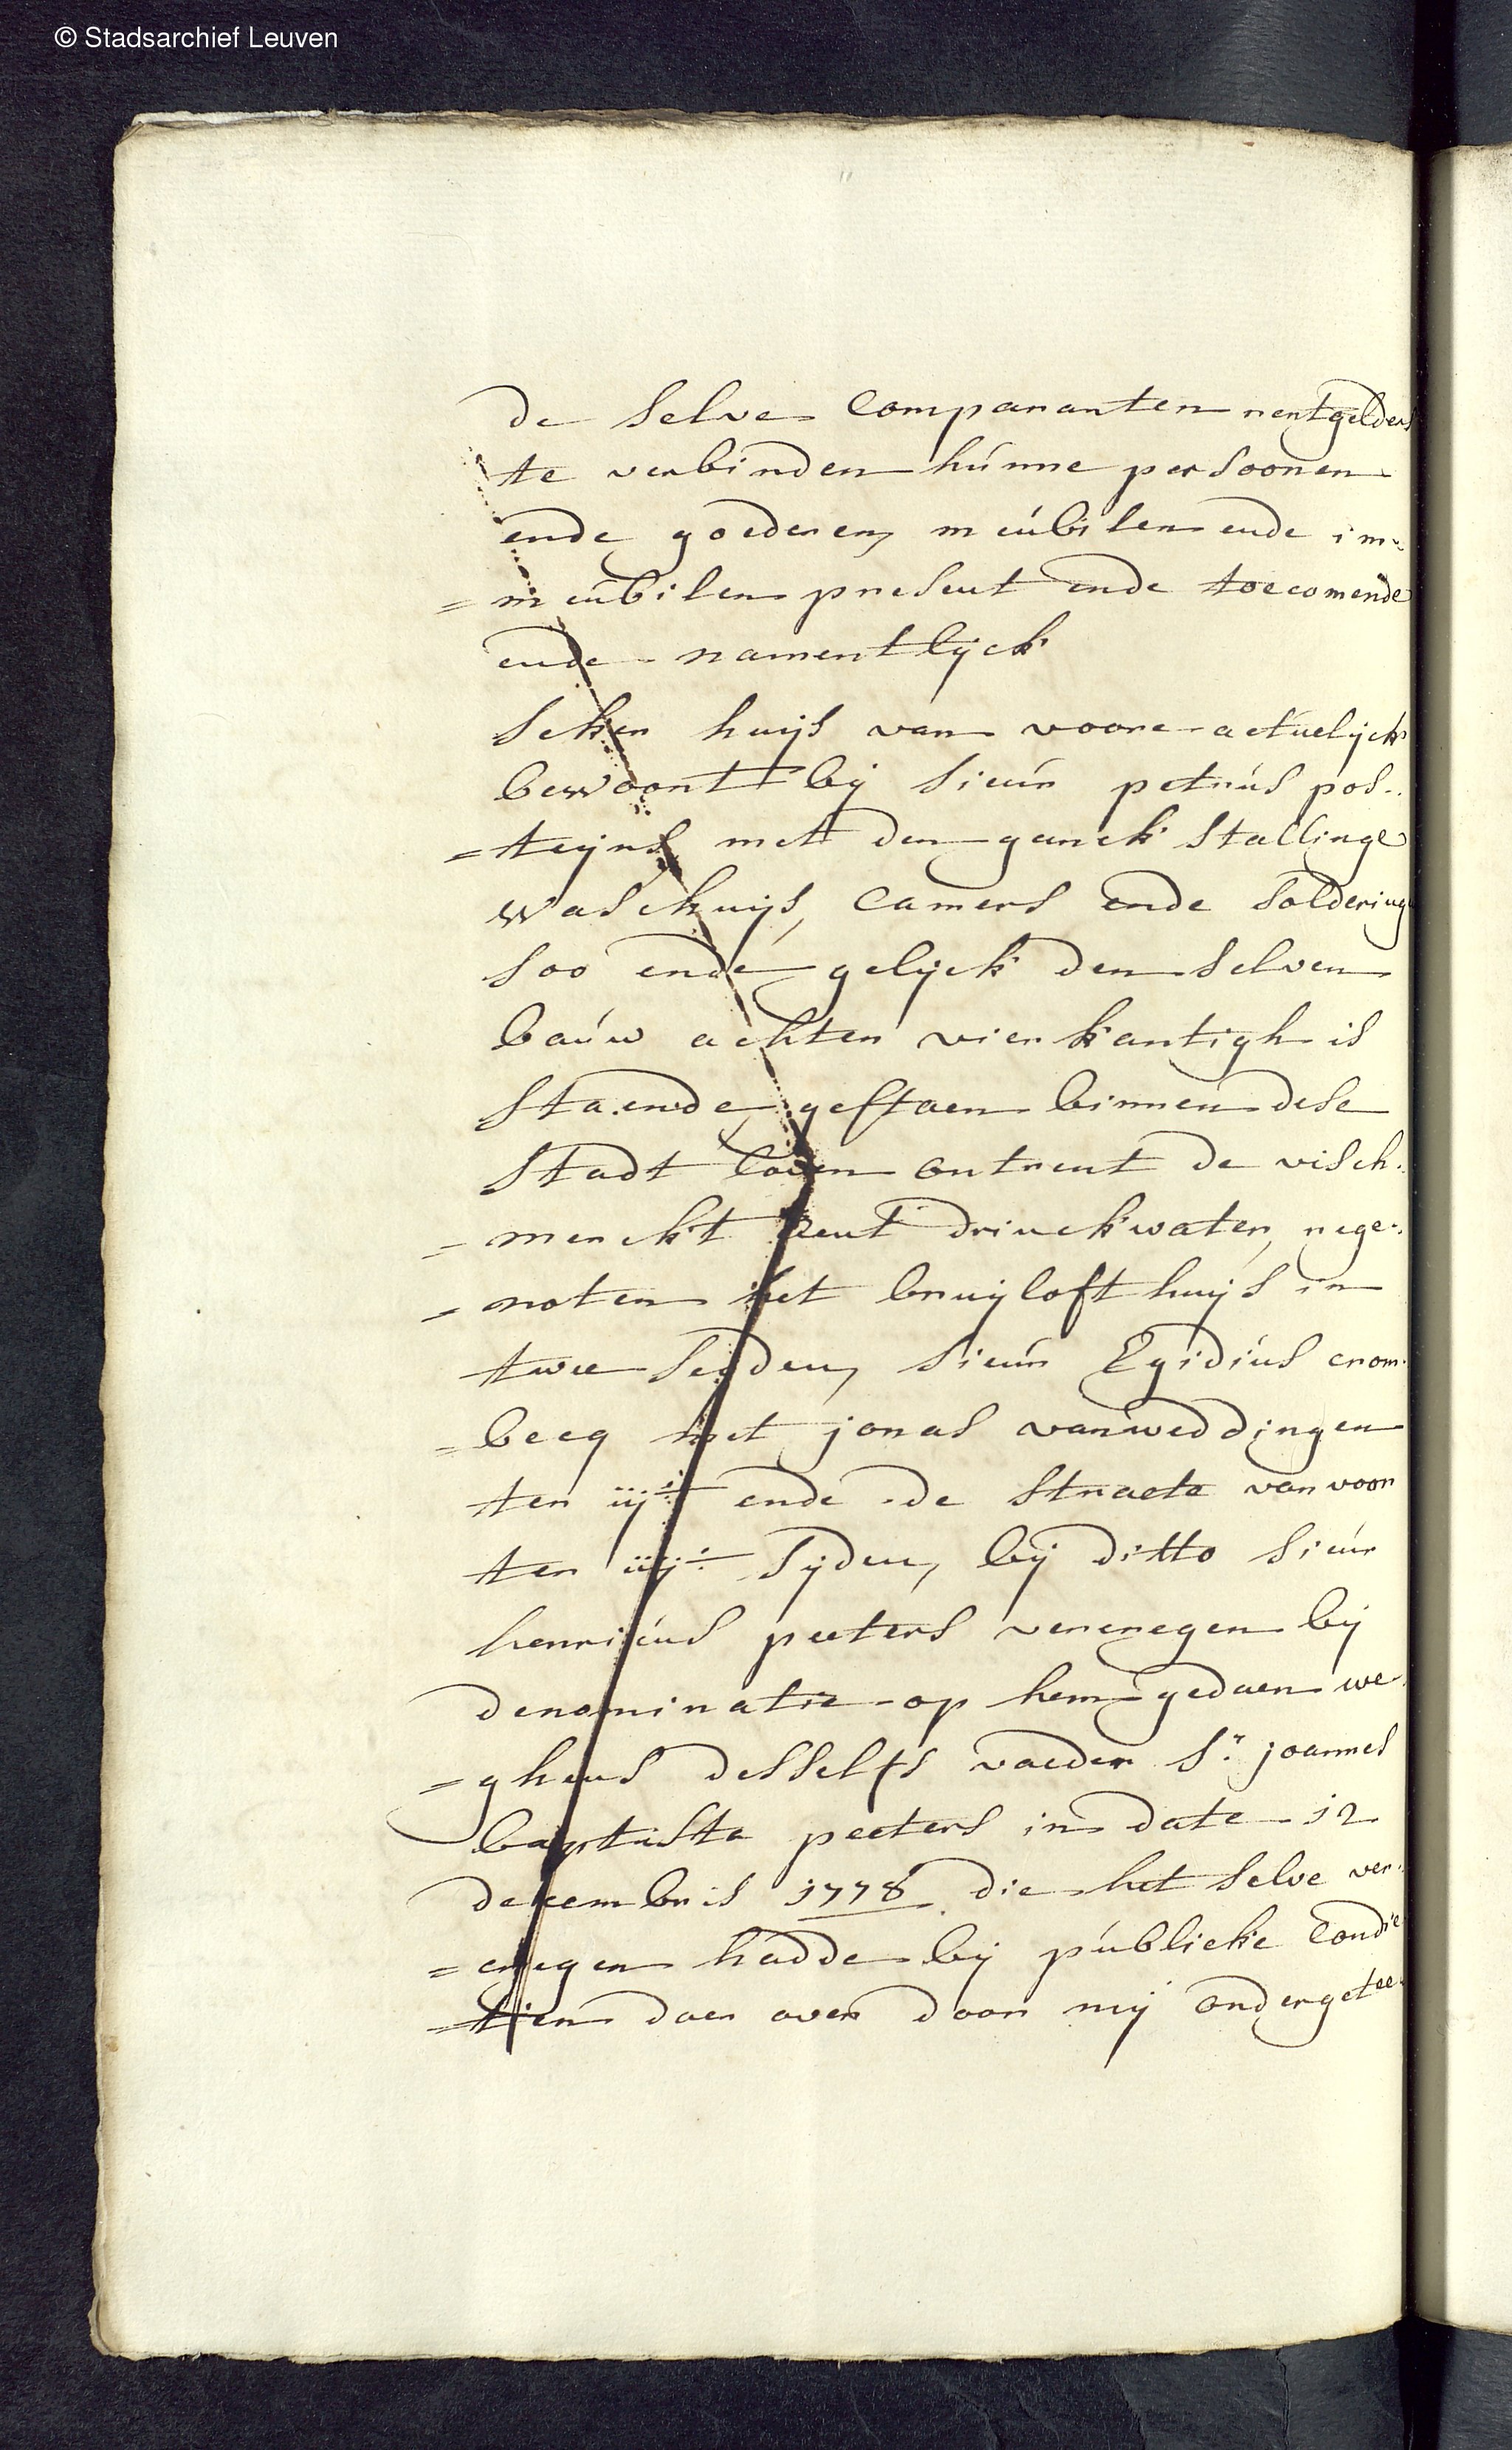 © Stadsarchief Leuven
de selve Comparanten rentgelders
te verbinden húnne persoonen
ende goederen, meúbilen ende im-
= meúbilen present ende toecomende
ende namentlijck
seker huijs van voore actuelijck
bewoont bij sieúr petrús pos..
= teijns met den ganck stallinge
waschuijs, camers ende solderinge
soo ende gelijck den selven
baúw achter vierkantigh is
staende gestaen binnen dese
stadt loven ontrent de visch.
= merckt bij drinckwater, rege..
= noten het bruijlofthuijs in
twee seijden, sieúr Egidiús crom.
= becq met jonas vanweddingen
ter iije ende de straete van voor
ter iiije sijden, bij ditto sieúr
henricús peeters vercregen bij
denominatie op hem gedaen we.
= ghens desselfs vaeder Sr joannes
baptista peeters in date 12
decembris 1778 die het selve ver.
= cregen hadde bij públicke condi
= tien daer over door mij ondergetee.